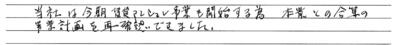 当社は今期賃貸マンション事業も開始する為 本業との合算の
事業計画を再確認いたしました。